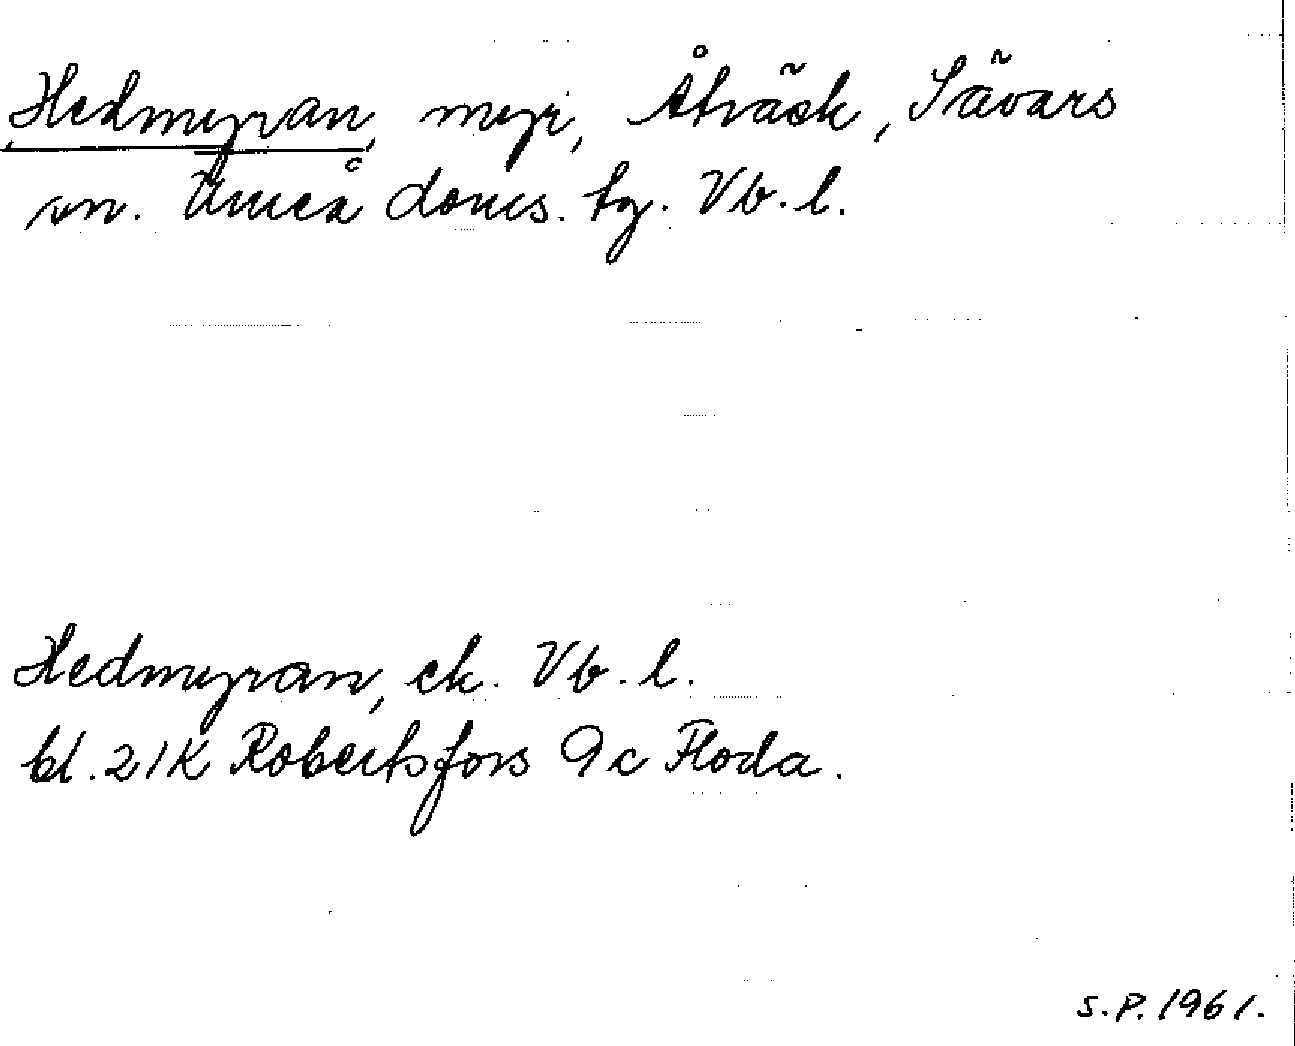 Hedmyran, myr, Åbäck, Sävars
sn. Umeå doms. tg. Vb. l.
Hedmyran, ek. Vb. l.
bl. 21K Robertsfors 9c Floda.
S.P. 1961.